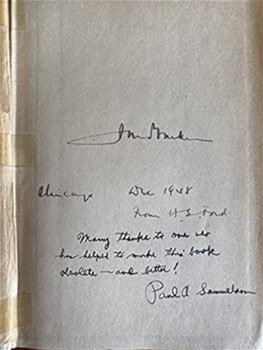 Chicago Dec 1948
From H.S. Ford
Many thanks to one who
has helped to make this book
obsolete — and better!
Paul A Samuelson